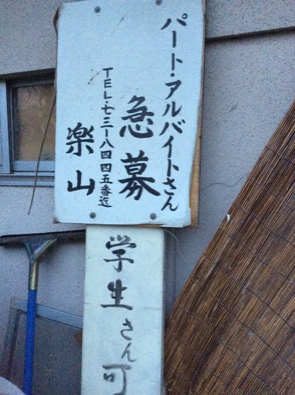 パート・アルバイトさん
急募
TEL・七三一八四四五番迄
楽山
学生さん可